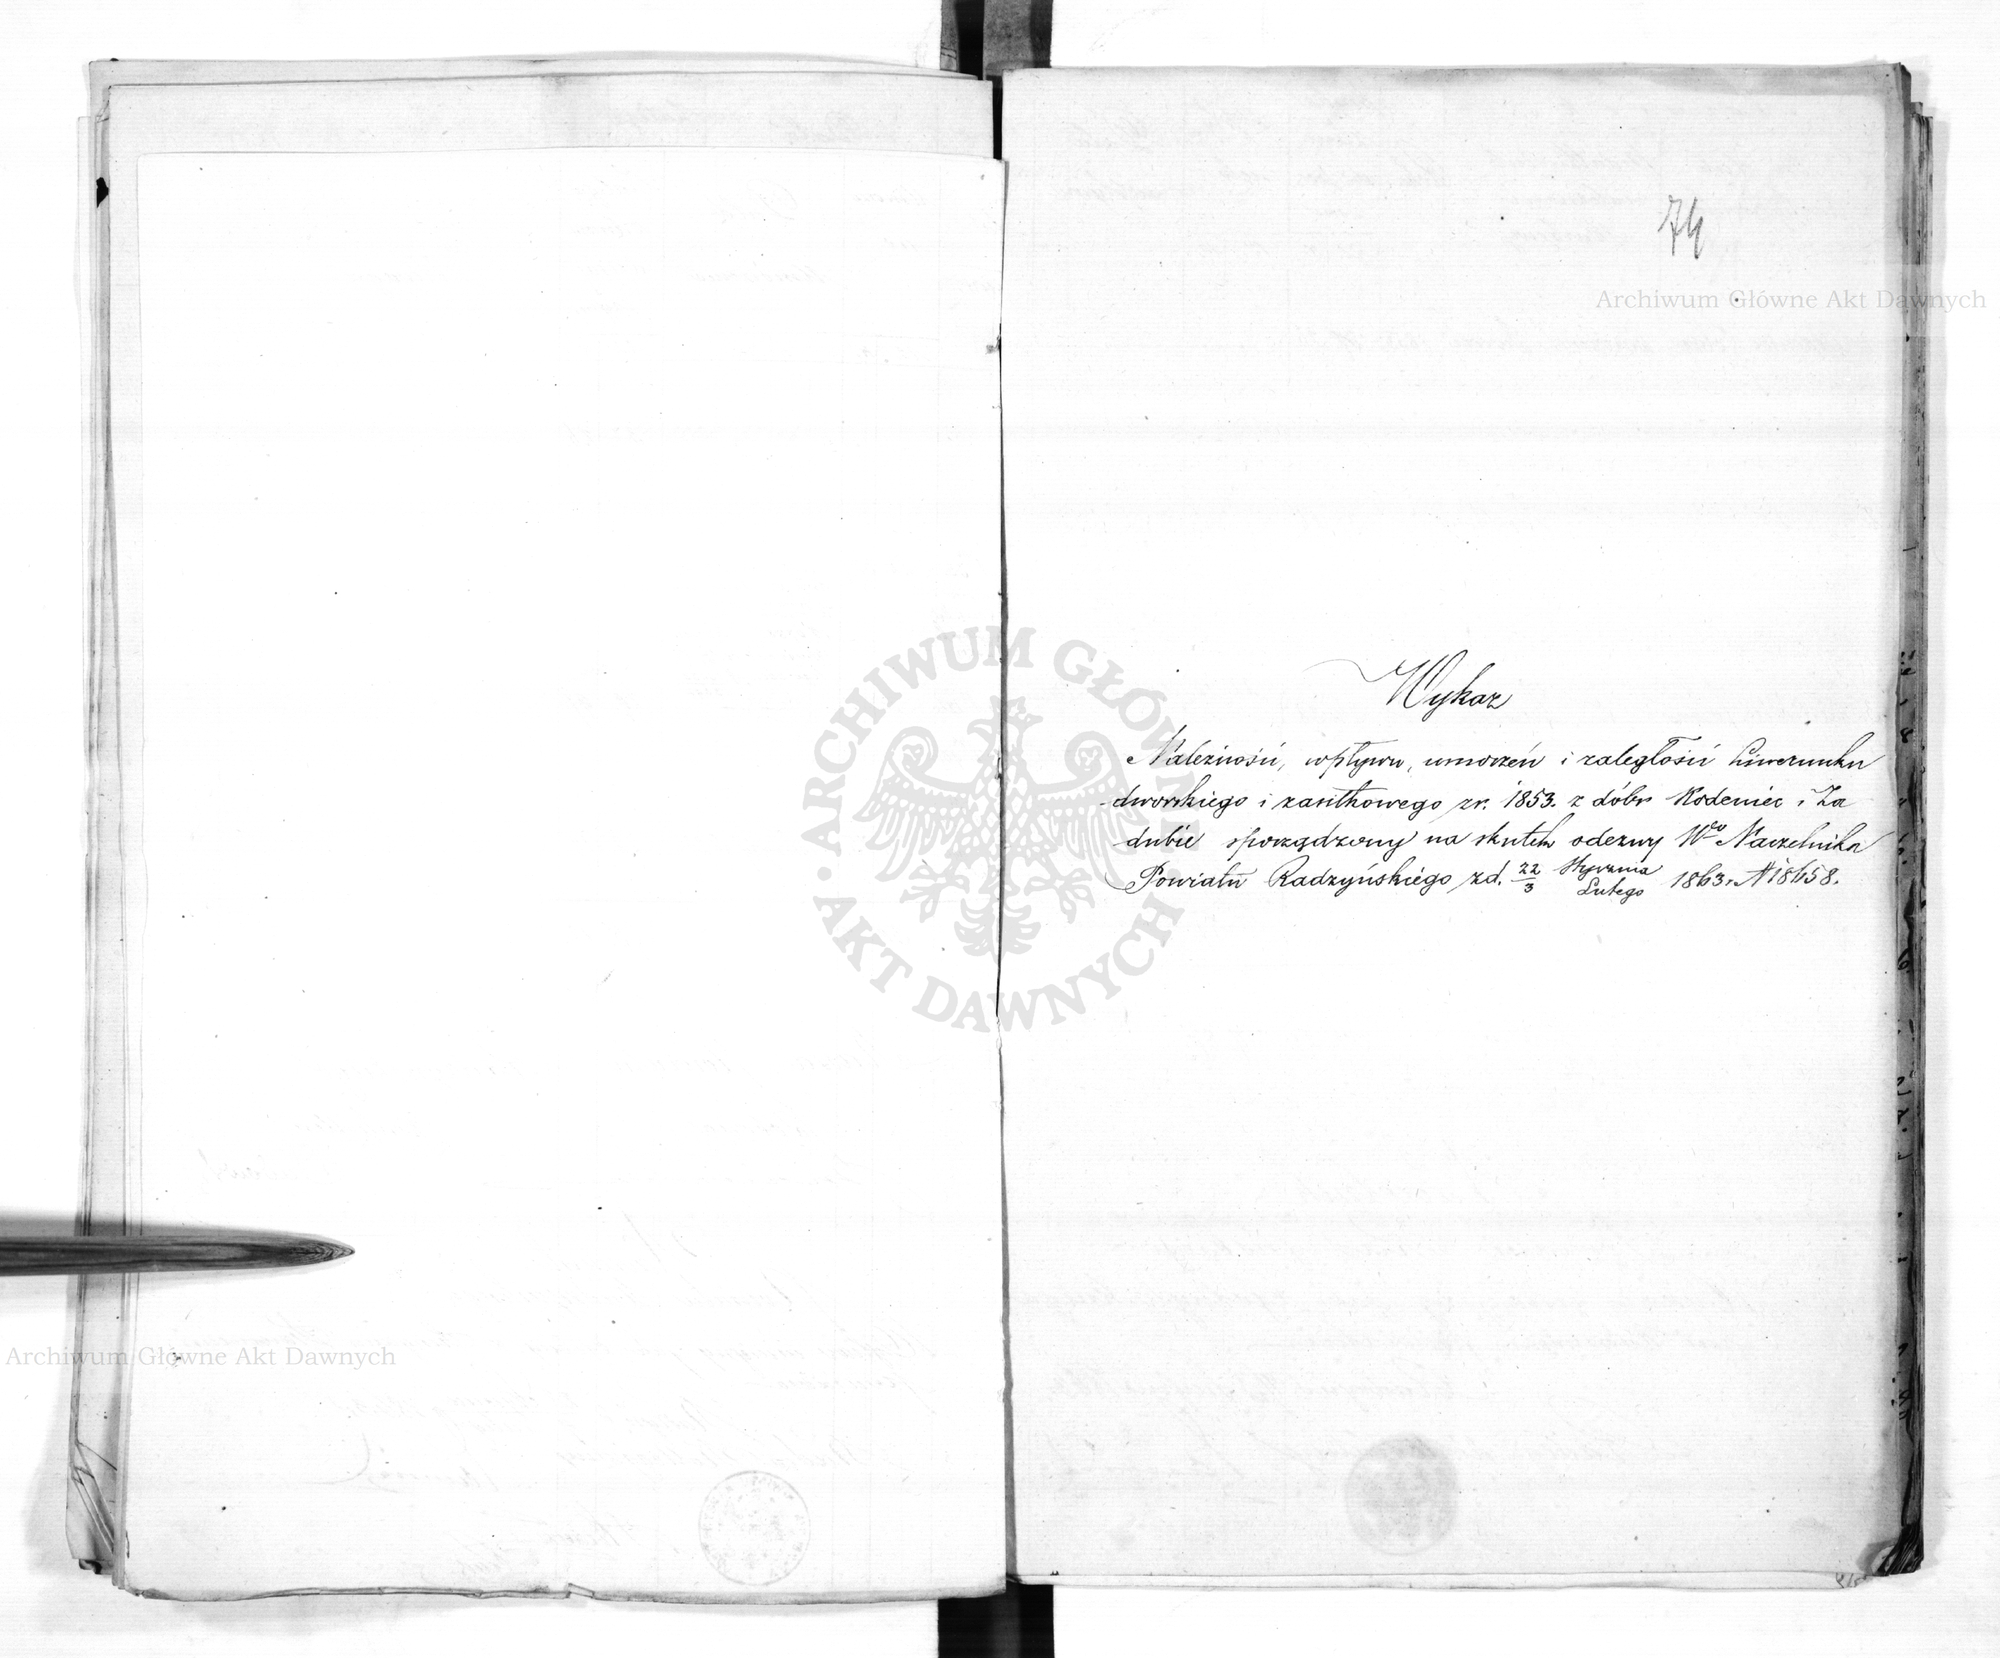 74
Archiwum Główne Akt Dawnych
ARCHIWUM GŁÓWNE AKT DAWNYCH
Wykaz
Należności, wpływu, umorzeń i zaległości Liwerunku
dworskiego i zasiłkowego zr. 1853. z dóbr Kodeniec i Za
dubie sporządzony na skutek odezwy Wgo Naczelnika
Powiatu Radzyńskiego zd. 22/3 Stycznia/Lutego 1863 r. N 18658.
Archiwum Główne Akt Dawnych